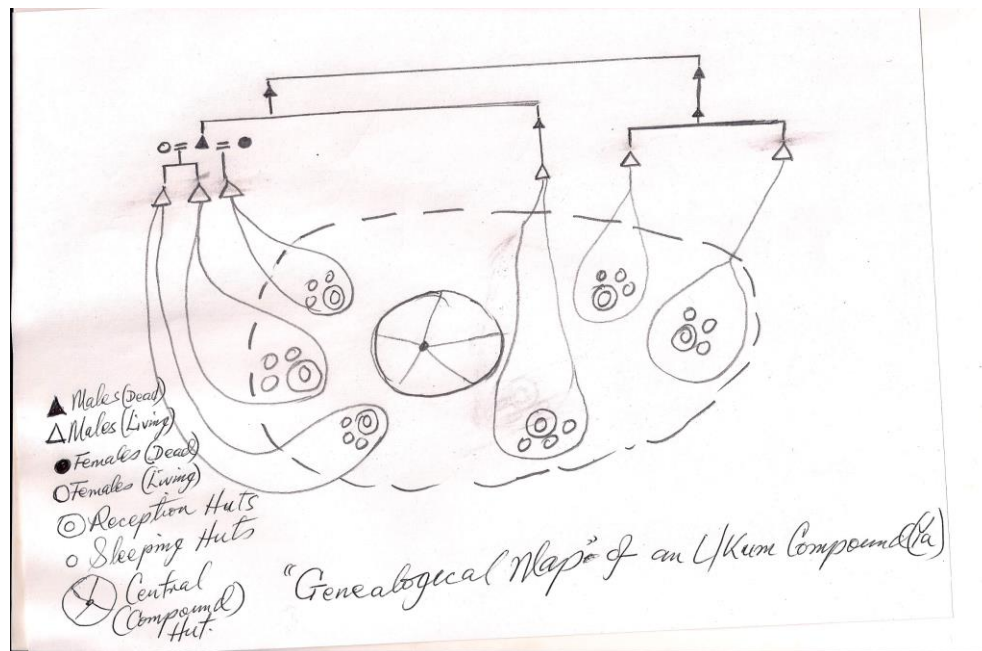 Males (Dead)
Males (Living)
Females (Dead)
Females (Living)
Reception Huts
Sleeping Huts
Central
(Compound)
Hut.
"Genealogical Map" of an U/Kum Compound (Ya)